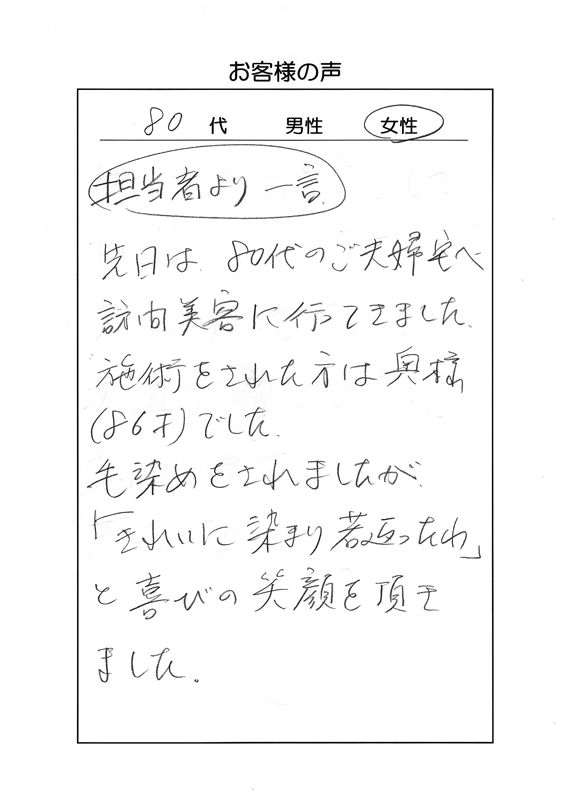 お客様の声
80 代 男性 女性
担当者より一言
先日は80代のご夫婦宅へ
訪問美容に行ってきました.
施術をされた方は奥様
(86才)でした.
毛染めをされましたが.
「きれいに染まり若返ったわ」
と喜びの笑顔を頂き
ました.